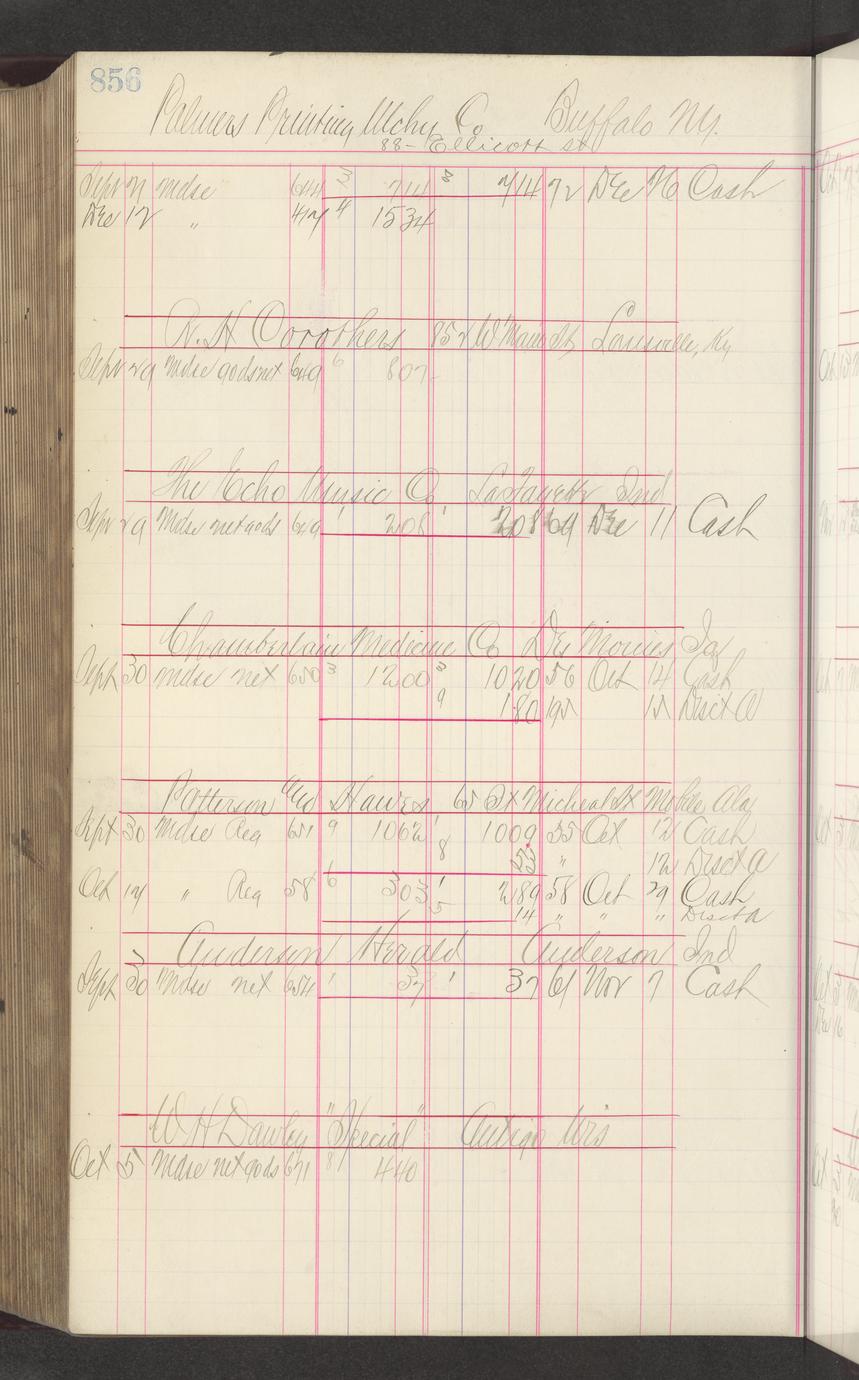 856
Palmers Printing Mchy Co Buffalo NY.
88- Ellicott st
Sept 21 Mdse 644 3 714 3 714 72 Dec 26 Cash
Dec 12 " 417 4 1534
852 W Main St Louisville, Ky
Sept 29 Mdse gods net 649 6 807
The Echo Music Co LaFayette Ind
Sept 29 Mdse net gods 649 1 208 1 208 69 Dec 11 Cash
Chamberlain Medicine Co Des Moines Ia
Sept 30 mdse net 650 3 1200 3 1020 56 Oct 14 Cash
9 180 Disct A
Patterson and Hawes 65 St Micheal St Mobile Ala
Sept 30 Mdse Reg 651 9 1062 1 1009 35 Oct 12 Cash
8 53 " 12 Disct A
Oct 17 " Reg 58 6 303 1 289 58 Oct 29 Cash
5 14 " " " Disct A
Anderson Herald Anderson Ind
Sept 30 Mdse net 654 1 37 1 37 61 Nov 7 Cash
W H Dawley "Special" Antigo Wis
Oct 5 Mdse net gods 671 81 440